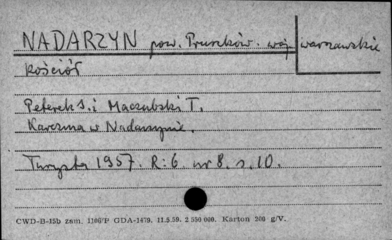 NADARZYN pow. Pruszków. woj. warszawskie
Kościół
Peterek S. i Maczubski T.
Karczma w Nadarzynie.
Turysta 1957. R: 6. nr 8. s. 10.
CWD-B-15b zam. 1106/P GDA-1479. 11.5.59. 2 500 000. Karton 200 g/V.